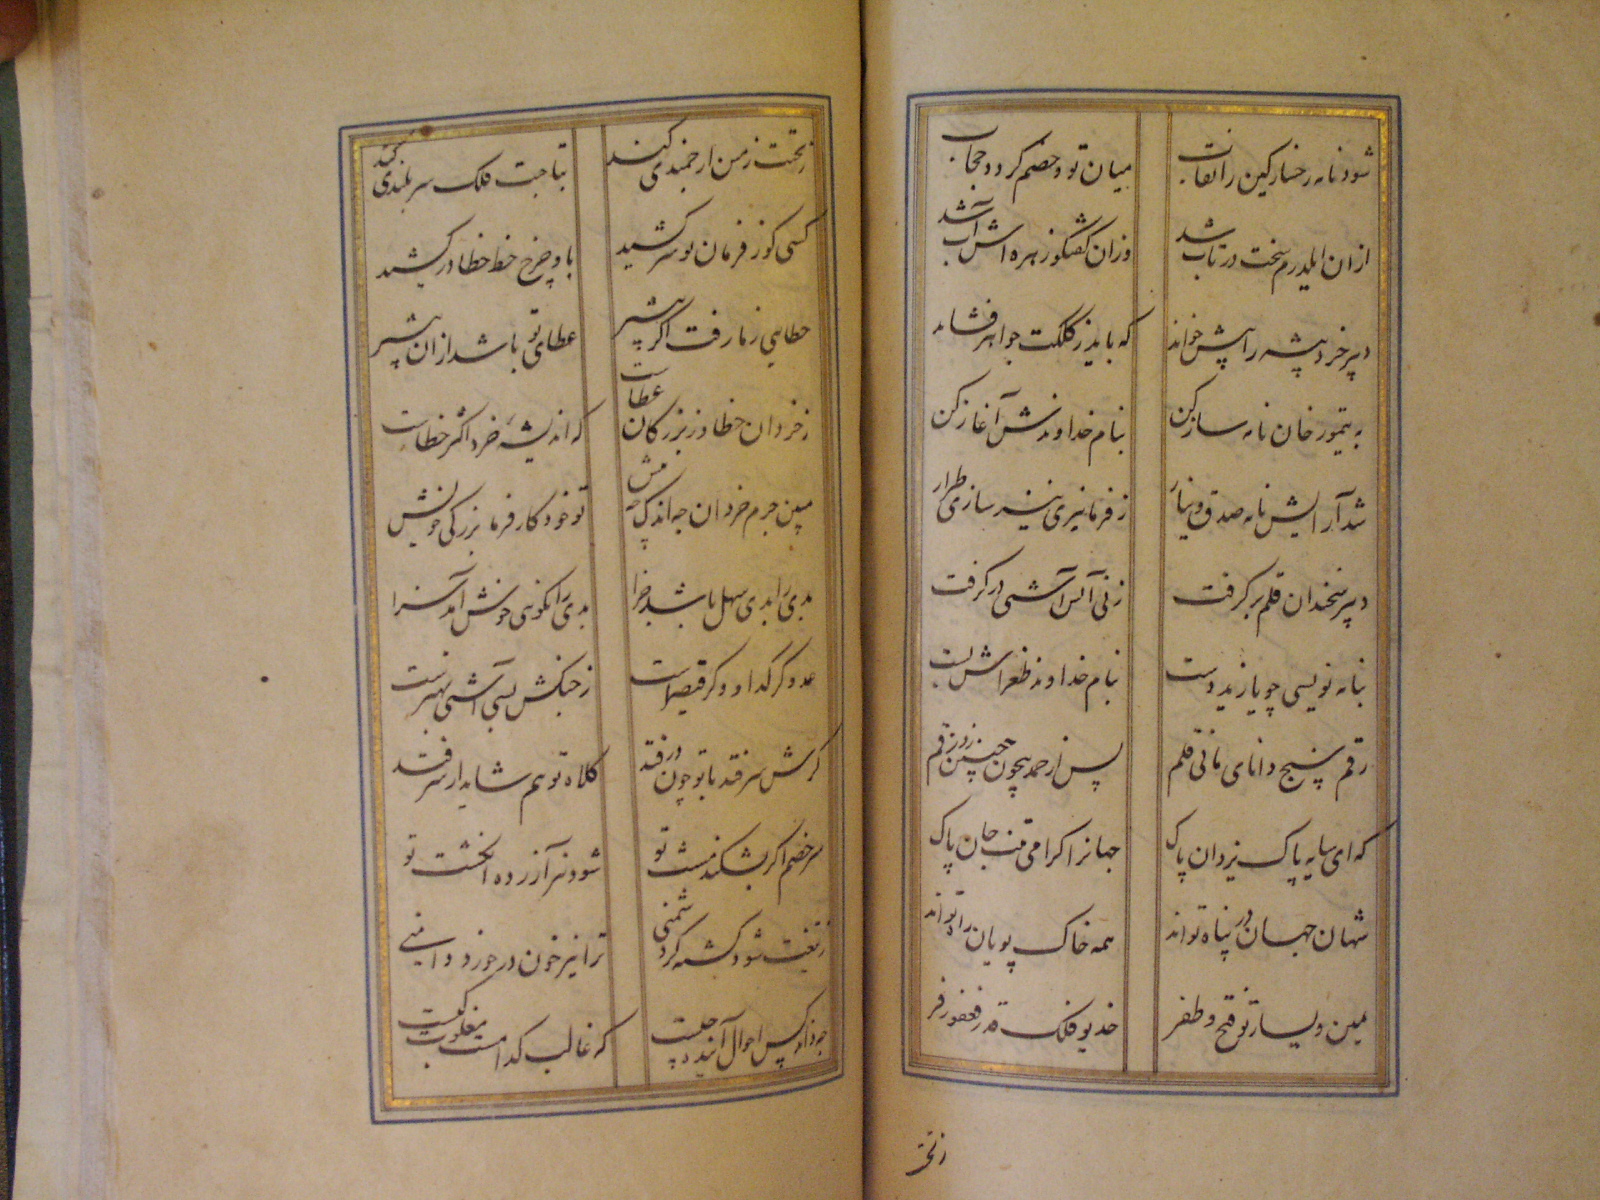 شود نامه رخسار کین را نقاب میان تو و خصم گردد حجاب
ازان ایلدرم سخت در تاب شد وزان گفتگو زهره اش آب شد
دبیر خرد پیشه را پیش خواند که باید ز کلکت جواهر فشاند
به تیمور خان نامه ساز کن بنام خداوندش آغاز کن
شد آرایش نامه صدق و نیاز ز فرمانبری نیز سازی طراز
دبیر سخندان قلم برگرفت آشتی درگرفت
بنامه نویسی چو یازید دست بنام خداوند طغراش بست
رقم سنج دانای مانی قلم پس از حمد بیچون چنین زد رقم
که ای سایه پاک یزدان پاک جهانرا گرامی جان پاک
شهان جهان در پناه تواند همه خاک پویان راه تواند
یمین و یسار تو فتح و ظفر خدیو فلک قدر فغفور فر
ز تخت
ز تختت زمین ارجمندی کند بتاجت فلک سربلندی کند
کسی کو ز فرمان تو سر کشید باو چرخ خط خطا در کشید
خطایی ز ما رفت اگر پیشتر عطای تو باشد ازان بیشتر
ز خردان خطا وز بزرگان عطاست که اندیشه خرد اکثر خطاست
مبین جرم خردان چه اندک چه بیش تو خود کار فرما بزرگی خویش
بدی را بدی سهل باشد جزا بدی را نکویی خوش آمد سزا
عدو گر گدا و وگر قیصر است ز جنگش بسی آشتی بهتر است
گرش سر فتد با تو چون درفتد کلاه تو هم شاید از سر فتد
سر خصم اگر بشکند مشت تو شود نیز آزرده انگشت تو
ز تیغت شود کشته گر دشمنی ترا نیز خون در خورد دامنی
چه داند کس احوال آینده چیست که غالب کدامست مغلوب کیست